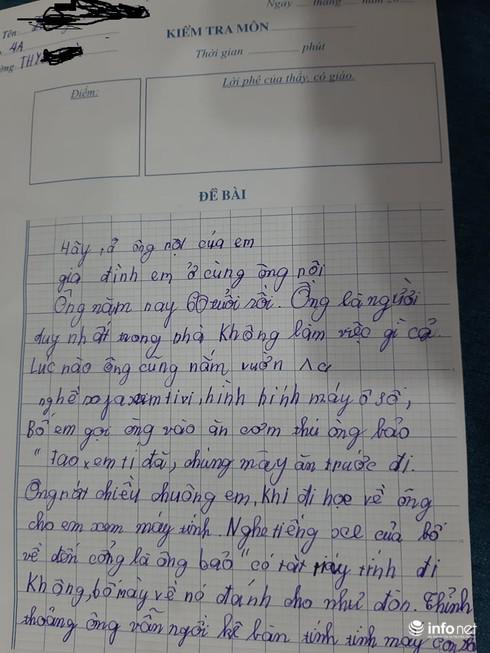 Ngày tháng năm
Tên
4A
THY
KIỂM TRA MÔN
Thời gian phút
Điểm:
Lời phê của thầy, cô giáo.
ĐỀ BÀI
Hãy tả ông nội của em
gia đình em ở cùng ông nội
Ông năm nay 60 tuổi rồi. Ông là người
duy nhất trong nhà không làm việc gì cả
Lúc nào ông cũng nằm vươn
nghề xem tivi, hình hình máy ô số,
Bố em gọi ông vào ăn cơm thì ông bảo
"Tao xem ti đã, chúng mày ăn trước đi.
Ông rất chiều chuộng em, khi đi học về ông
cho em xem máy tính. Nghe tiếng xe của bố
về đến cổng là ông bảo "có tắt máy tính đi
không, bố mày về nó đánh cho như đòn. Thỉnh
thoảng ông vẫn ngồi kê bàn tính tính máy con
infonet